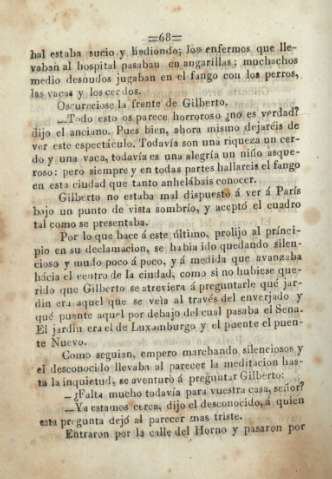 =68=
hal estaba sucio y hediondo; los enfermos que lle-
vaban al hospital pasaban en angarillas; muchachos
medio desnudos jugaban en el fango con los perros,
las vacas y los cerdos.
Oscureciose la frente de Gilberto.
—Todo esto os parece horroroso ¿no es verdad?
dijo el anciano. Pues bien, ahora mismo dejareis de
ver este espectáculo. Todavía son una riqueza un cer-
do y una vaca, todavía es una alegría un niño asque-
roso: pero siempre y en todas partes hallareis el fango
en esta ciudad que tanto anhelábais conocer.
Gilberto no estaba mal dispuesto á ver á París
bajo un punto de vista sombrío, y aceptó el cuadro
tal como se presentaba.
Por lo que hace á este último, prolijo al princi-
pio en su declamacion, se habia ido quedando silen-
cioso y mudo poco á poco, y á medida que avanzaba
hácia el centro de la ciudad, como si no hubiese que-
rido que Gilberto se atreviera á preguntarle qué jar-
din era aquel que se veia al través del enverjado y
qué puente aquel por debajo del cual pasaba el Sena.
El jardin era el de Luxemburgo y el puente el puen-
te Nuevo.
Como seguian, empero marchando silenciosos y
el desconocido llevaba al parecer la meditacion has-
ta la inquietud, se aventuró á preguntar Gilberto:
—¿Falta mucho todavía para vuestra casa, señor?
—Ya estamos cerca, dijo el desconocido, á quien
esta pregunta dejó al parecer mas triste.
Entraron por la calle del Horno y pasaron por